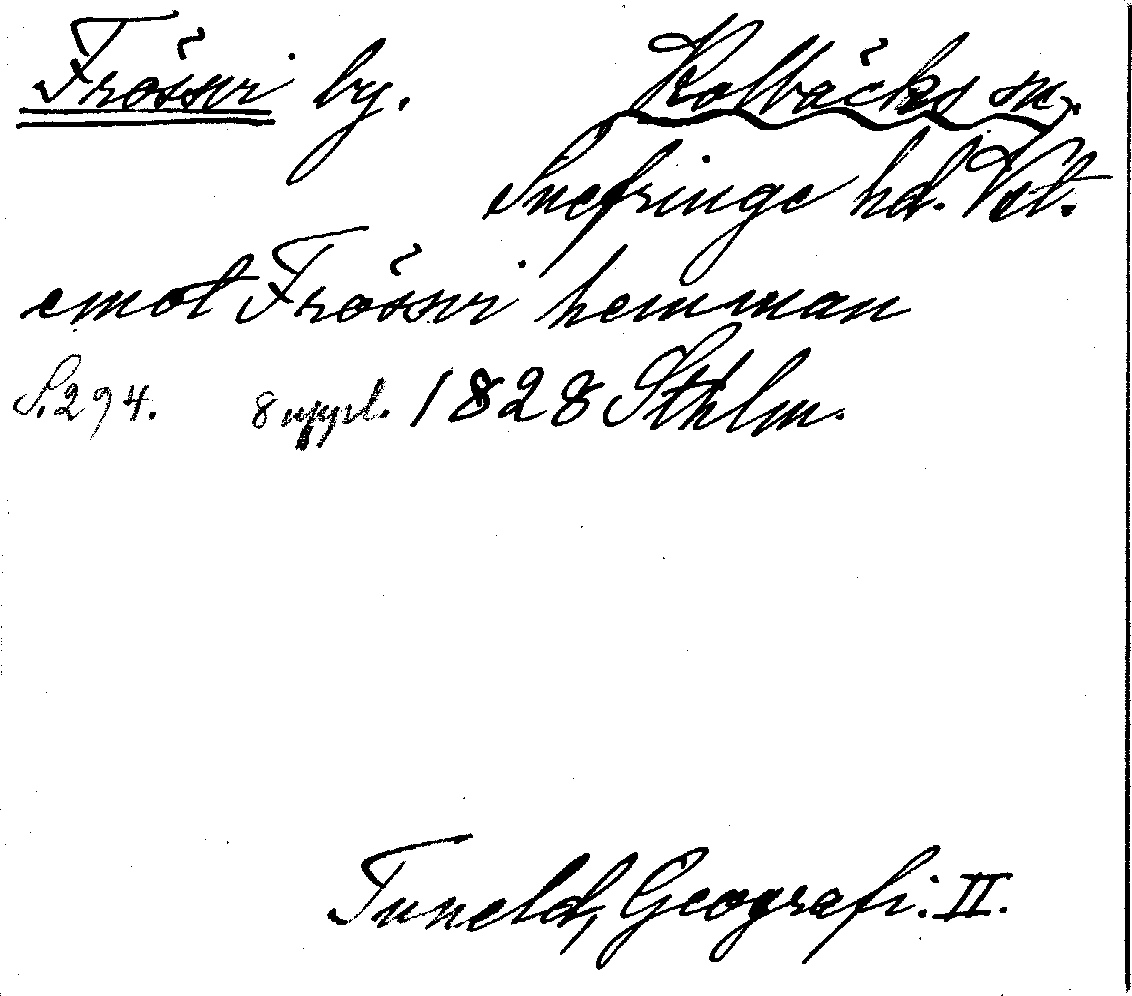 Frössvi by. Kolbäcks sn.
Snefringe hd. Vstl.
emot Frössvi hemman
S. 294. 8 uppl. 1828 Sthlm.
Tuneld, Geografi. II.